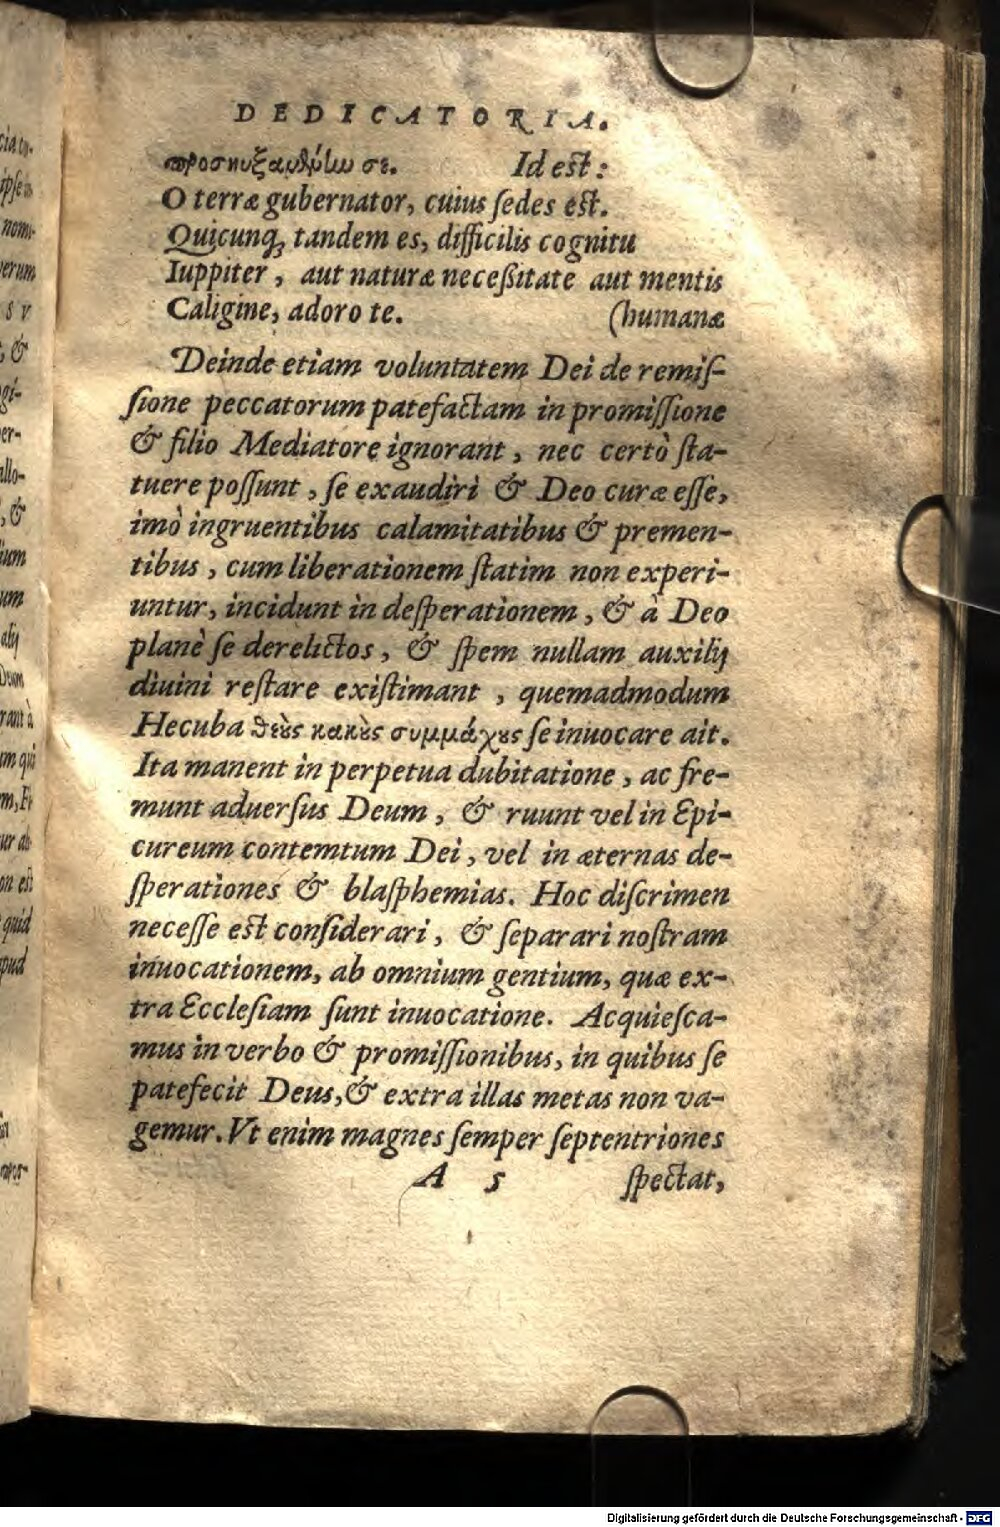 DEDICATORIA.
προσηυξαμην σε. Id est:
O terræ gubernator, cuius ſedes eſt.
Quicunq; tandem es, difficilis cognitu
Iuppiter, aut naturæ neceßitate aut mentis
Caligine, adoro te. (humanæ
Deinde etiam voluntatem Dei de remiſ-
ſione peccatorum patefactam in promiſſione
& filio Mediatore ignorant, nec certò ſta-
tuere poſſunt, ſe exaudiri & Deo curæ eſſe,
imò ingruentibus calamitatibus & premen-
tibus, cum liberationem ſtatim non experi-
untur, incidunt in deſperationem, & à Deo
planè ſe derelictos, & ſpem nullam auxilij
diuini reſtare exiſtimant, quemadmodum
Hecuba θεὸς κακὸς συμμάχȣς ſe inuocare ait.
Ita manent in perpetua dubitatione, ac fre-
munt aduerſus Deum, & ruunt vel in Epi-
cureum contemtum Dei, vel in æternas de-
ſperationes & blaſphemias. Hoc diſcrimen
neceſſe eſt conſiderari, & ſeparari noſtram
inuocationem, ab omnium gentium, quæ ex-
tra Eccleſiam ſunt inuocatione. Acquieſca-
mus in verbo & promiſſionibus, in quibus ſe
patefecit Deus, & extra illas metas non va-
gemur. Vt enim magnes ſemper ſeptentriones
A 5 ſpectat,
Digitalisierung gefördert durch die Deutsche Forschungsgemeinschaft - DFG